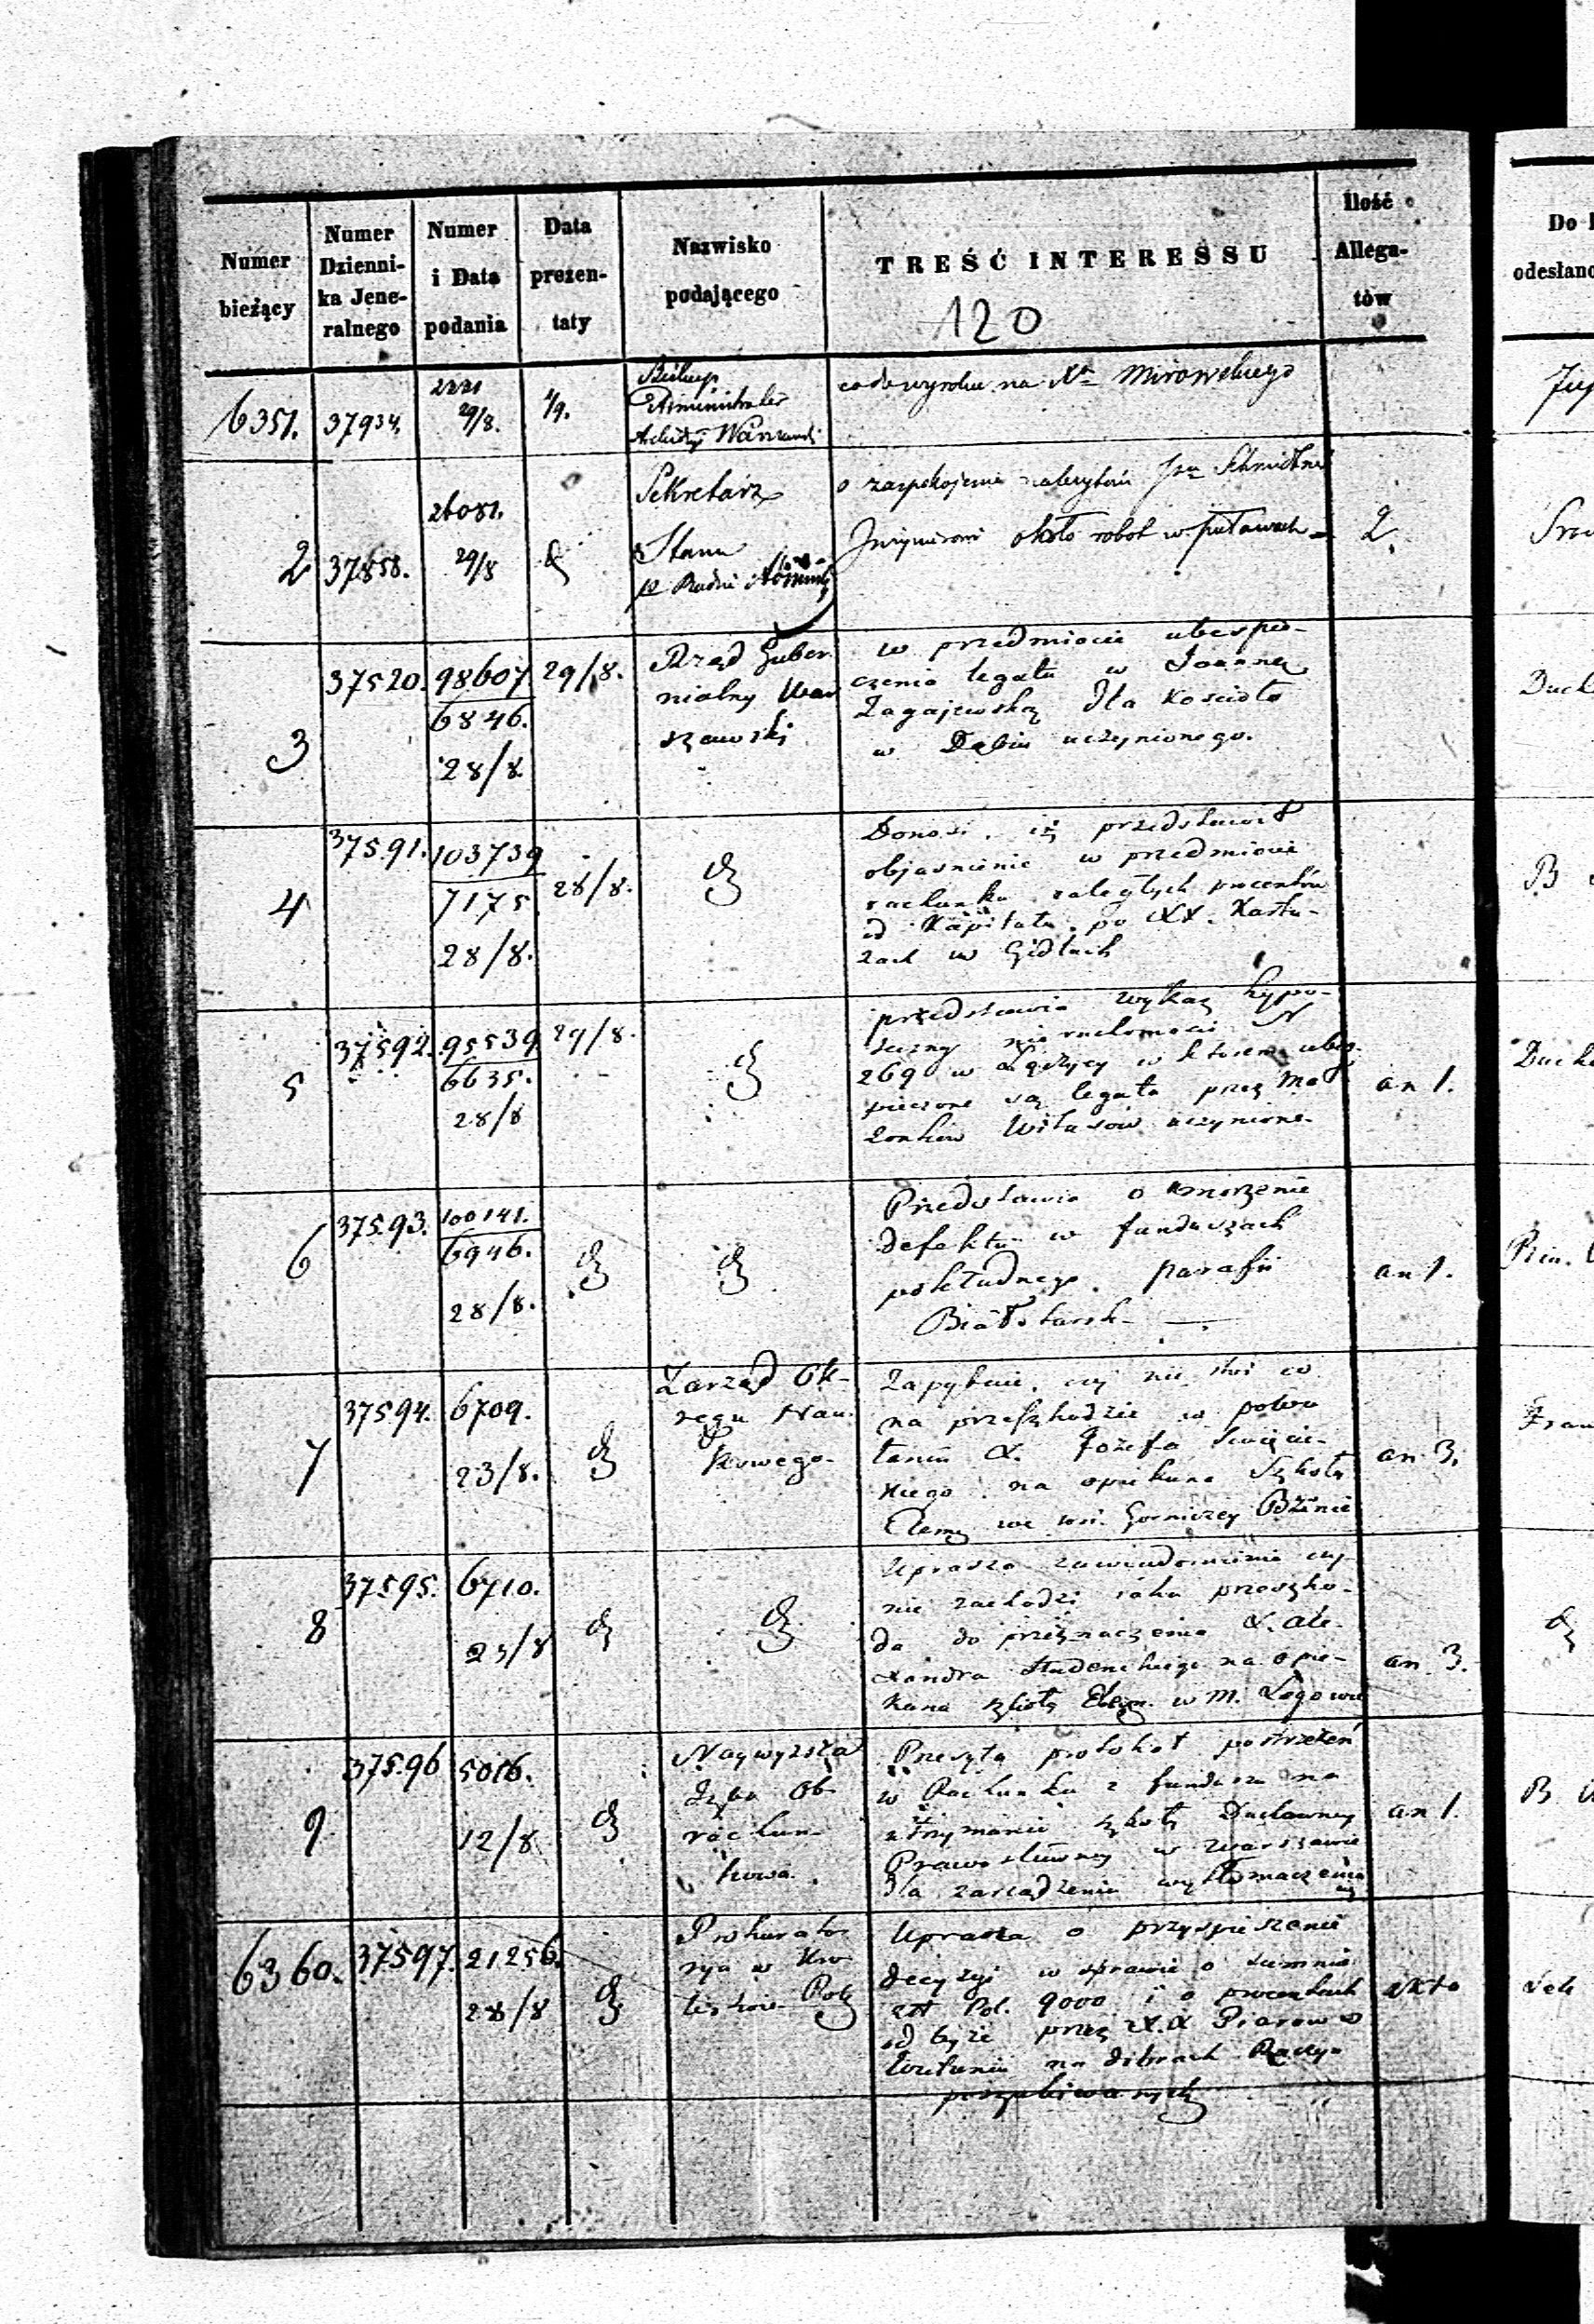 Numer bieżący
Numer Dzienni-
ka Jene-
ralnego
Numer i Data podania
Data prezen-
taty
Nazwisko podającego
TREŚĆ INTERESSU
Ilość Allega-
tów
120
6351.
37934.
2221
29/8.
1/9.
Biskup
Administrator
Warszawski
co do wyroku na Xa Mirowskiego
2
37858.
26081.
29/8
Sekretarz
Stanu
o zaspokojenie należytości Schmidtowi
około robot w Puławach
2.
3
37520.
98607
6846.
28/8
29/8.
Rząd Guber
nialny War
szawski
w przedmiocie ubespie-
czenia legatu w Joannę
Zagajewską dla Kościoła
w Dąbiu uczynionego.
4
37591.
103739
7175
28/8.
28/8.
Donosi, iż przedstawił
objasnienie w przedmiocie
rachunku zaległych procentów
od Kapitału po XX. Kartu-
zach w Gidlach
5
37592.
95539
6635.
28/8
29/8.
przedstawia wykaz hypo-
teczny nieruchomości N
269 w Łęczycy w którem ubez-
pieczone są legata przez mał
żonków Witusów uczynione
an 1.
6
37593.
100141.
6946.
28/8.
Przedstawia o umorzenie
defektu w funduszach
pokładnego parafii
an 1.
7
37594.
6709.
23/8.
Zarząd Ok-
ręgu Nau
kowego
Zapytuie, czy nie stoi co
na przeszkodzie w powo
łaniu X. Józefa Święcic-
kiego na opiekuna Szkoły
Elem we wsi Gorniczey Bzinie
an 3.
8
37595.
6710.
23/8
Uprasza zawiadomienie czy
nie zachodzi jaka przeszko-
da do przeznaczenia X. Ale-
xandra Studenckiego na opie-
kuna szkoły Elem. w m. Łagowie
an 3.
9
37596
5016.
12/8
Naywyższa
Izba Ob-
rachun-
kowa
Przesyła protokoł postrzeżeń
w Rachunku z funduszu na
utrzymanie szkoły Duchowney
Prawosławney w Warszawie
dla zarządzenia wytłomaczenia
an 1.
6360.
37597.
21256.
28/8
Prokurato
rya w Kro
lestwie Pols
Uprasza o przyspieszenie
decyzyi w sprawie o summie
złt Pol. 9000 i o procentach
od teyże przez X.X Piarow w
Wieluniu na dobrach
poszukiwanych
akta